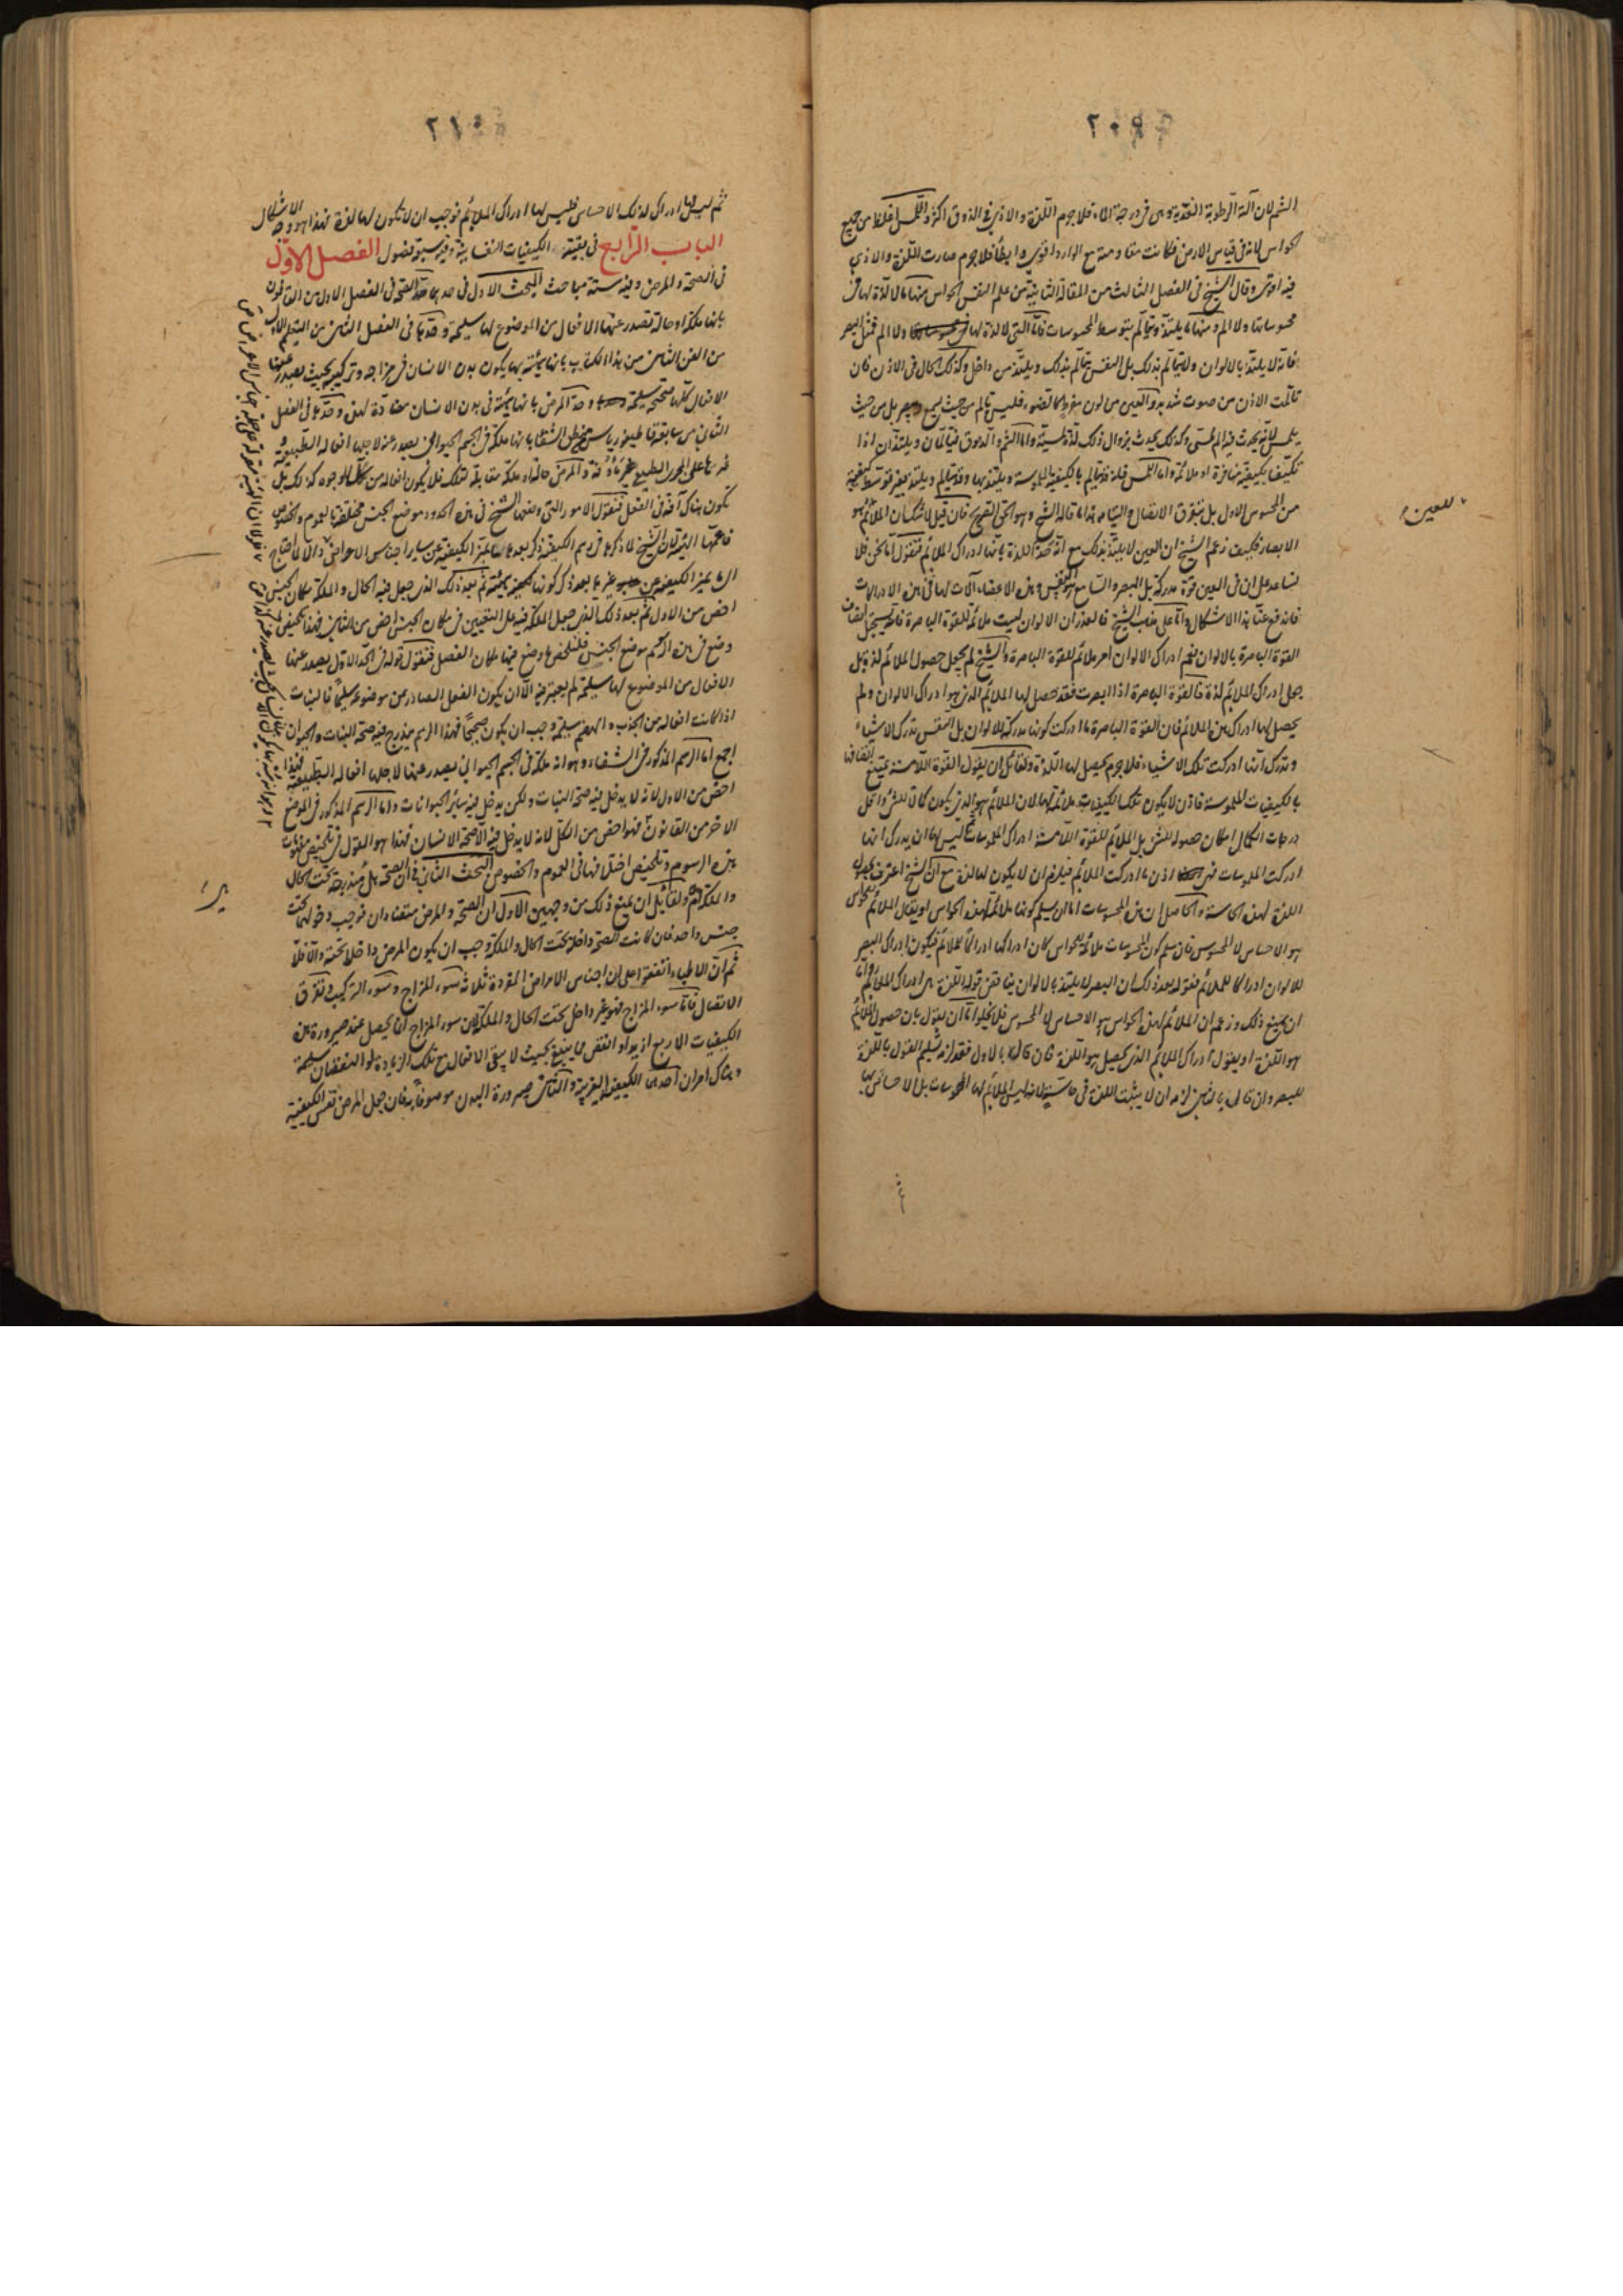 ٢٠٩
الشم لان آلة الرطوبة العذبة وهى فى درجة الماء فلا جرم اللذة والاذى فى الذوق اكثر واللمس اغلظ من جميع
الحواس لانه فى قياس الارض فكانت مقاومته مع الوارد اقوى وابطأ فلا جرم صارت اللذة والاذى
فيه اقوى وقال الشيخ فى الفصل الثالث من المقالة الثانية من علم النفس الحواس منها ما لا لذة لها فى
محسوساتها ولا الم ومنها ما يلتذ ويتألم بتوسط المحسوسات فاما التى لا لذة لها ولا الم فمثل البصر
فانه لا يلتذ بالالوان ولا يتألم بذلك بل النفس يتألم بذلك ويلتذ من داخل وكذلك الحال فى الاذن فان
تألمت الاذن من صوت شديد والعين من لون مفرط كالضوء فليس تألم من حيث يسمع ويبصر بل من حيث
يلمس لانه يحدث فيه الم لمسى وكذلك يحدث بزوال ذلك لذة لمسية واما الشم والذوق فيتألمان ويلتذان اذا
تكيفا بكيفية منافرة او ملائمة واما اللمس فانه قد يتألم بالكيفية الملموسة ويلتذ بها وقد يتألم ويلتذ بغير توسط كيفية
من المحسوس الاول بل بتفرق الاتصال والتيامه هذا ما قاله الشيخ وهو الحق الصريح فان قيل لا شك ان الملائم هو
للعين
الابصار فكيف زعم الشيخ ان العين لا يلتذ بذلك مع انه حد اللذة بانها ادراك الملائم فنقول اما نحن فلا
نساعد على ان فى العين قوة مدركة بل البصر والسامع هو النفس وهذه الاعضاء آلات لها فى هذه الادراكات
فاندفع عنا هذا الاشكال واما على مذهب الشيخ فالعذر ان الالوان ليست ملائمة للقوة الباصرة فانه يستحيل اتصاف
القوة الباصرة بالالوان نعم ادراك الالوان امر ملائم للقوة الباصرة والشيخ لم يجعل حصول الملائم لذة بل
جعل ادراك الملائم لذة فالقوة الباصرة اذا ابصرت فقد حصل لها الملائم الذى هو ادراك الالوان ولم
يحصل لها ادراك هذا الملائم فان القوة الباصرة ما ادركت كونها مدركة للالوان بل النفس تدرك الاشياء
وتدرك انها ادركت تلك الاشياء فلا جرم يحصل لها اللذة ولقائل ان يقول القوة اللامسة يمتنع اتصافها
بالكيفيات الملموسة فاذن لا يكون تلك الكيفيات ملائمة لها لان الملائم هو الذى يكون كمالا للشئ واقل
درجات الكمال امكان حصوله للشئ بل الملائم للقوة اللامسة ادراك الملموسات ثم ليس لها ان يدرك انها
ادركت الملموسات فهى اذن ما ادركت الملائم فيلزم ان لا يكون لها لذة مع ان الشيخ اعترف بحصول
اللذة لهذه الحاسة والحاصل ان هذه المحسوسات اما ان يسلم كونها ملائمة لهذه الحواس او يقال الملائم للحواس
هو الاحساس لا المحسوس فان سلم كون المحسوسات ملائمة للحواس كان ادراكها ادراكا للملائم فيكون ادراك البصر
للالوان ادراكا للملائم فقوله بعد ذلك ان البصر لا يلتذ بالالوان يناقض قوله اللذة هى ادراك الملائم واما
ان يمنع ذلك وزعم ان الملائم لهذه الحواس هو الاحساس لا المحسوس فلا يخلوا اما ان يقول بان حصول الملائم
هو اللذة او يقول ادراك الملائم الذى يحصل هو اللذة فان قال بالاول فقد لزمه تسليم القول باللذة
للبصر وان قال بالثانى لزمه ان لا يثبت اللذة فى حاسة اللمس لانه ليس الملائم لها المحسوسات بل الاحساس بها
٢١٠
ثم ليس لها ادراك لذلك الاحساس فليس لها ادراك الملائم فوجب ان لا يكون لها لذة فهذا هو وجه الاشكال
الباب الرابع فى بقية الكيفيات النفسانية وفيه سبع فصول الفصل الاول
فى الصحة والمرض وفيه ستة مباحث البحث الاول فى حدهما حد الصحة فى الفصل الاول من القانون
بانها ملكة او حالة تصدر عنها الافعال من الموضوع لها سليمة وحدها فى الفصل الثانى من التعليم الاول
من الفن الثانى من هذا الكتاب بانها هيئة بها يكون بدن الانسان فى مزاجه وتركيبه بحيث يصدر عنها
الافعال كلها صحيحة سليمة وحد المرض بانها هيئة فى بدن الانسان مضادة لهذه وحدها فى الفصل
الثانى من سابعة قاطيغورياس من منطق الشفا بانها ملكة فى الجسم الحيوانى يصدر عنه لاجلها افعاله الطبيعية
وغيرها على المجرى الطبيعى غير ماؤفة والمرض حالة او ملكة مقابلة لتلك فلا يكون افعاله من كل الوجوه كذلك بل
يكون هناك آفة فى الفعل فنقول الامور التى وضعها الشيخ فى هذه الحدود موضع الجنس مختلفة بالعموم والخصوص
فاعمها
الى تميز الكيفية عن غيرها بعد ذكر كونها هيئة ثم بعد ذلك الذى جعل فيه الحال والملكة مكان الجنس
اخص من الاول ثم بعد ذلك الذى جعل الملكة فيه على التعيين فى مكان الجنس اخص من الثانى فهذا تلخيص ما
وضع فى هذه الرسم موضع الجنس فلنلخص ما وضع فيها مكان الفصل فنقول قوله فى الحد الاول يصدر عنها
الافعال من الموضوع لها سليمة لم يعتبر فيه الا ان يكون الفعل الصادر عن موضوعه سليما فالنبات
اذا كانت افعاله من الجذب والهضم سليمة وجب ان يكون صحيحا فهذا الرسم يندرج فيه صحة النبات والحيوان
اجمع اما الرسم المذكور فى الشفاء وهو انه ملكة فى الجسم الحيوانى يصدر عنها لاجلها افعاله الطبيعية فهذا
اخص من الاول لانه لا يدخل فيه صحة النبات ولكن يدخل فيه سائر الحيوانات واما الرسم المذكور فى الموضع
الاخر من القانون فهو اخص من الكل لانه لا يدخل فيه الا صحة الانسان فهذا هو القول فى تلخيص مفهومات
هذه الرسوم وتلخيص اختلافها فى العموم والخصوص البحث الثانى فى ان الصحة هل مندرجة تحت الحال
والملكة ام لا ولقائل ان يمنع ذلك من وجهين الاول ان الصحة والمرض متضادان فوجب دخولهما تحت
جنس واحد فان كانت الصحة داخلة تحت الحال والملكة وجب ان يكون المرض داخلا تحته والا فلا
ثم ان الاطباء اتفقوا على ان اجناس الامراض المفردة ثلاثة سوء المزاج وسوء التركيب وتفرق
الاتصال فاما سوء المزاج فهو غير داخل تحت الحال والملكة لان سوء المزاج انما يحصل عند صيرورة هذه
الكيفيات الاربع ازيد او انقص مما ينبغى بحيث لا يبقى الافعال مع تلك الزيادة او النقصان سليمة
وهناك امران احدهما الكيفية الغريبة والثانى صيرورة البدن موصوفا بها فان جعل المرض نفس الكيفية